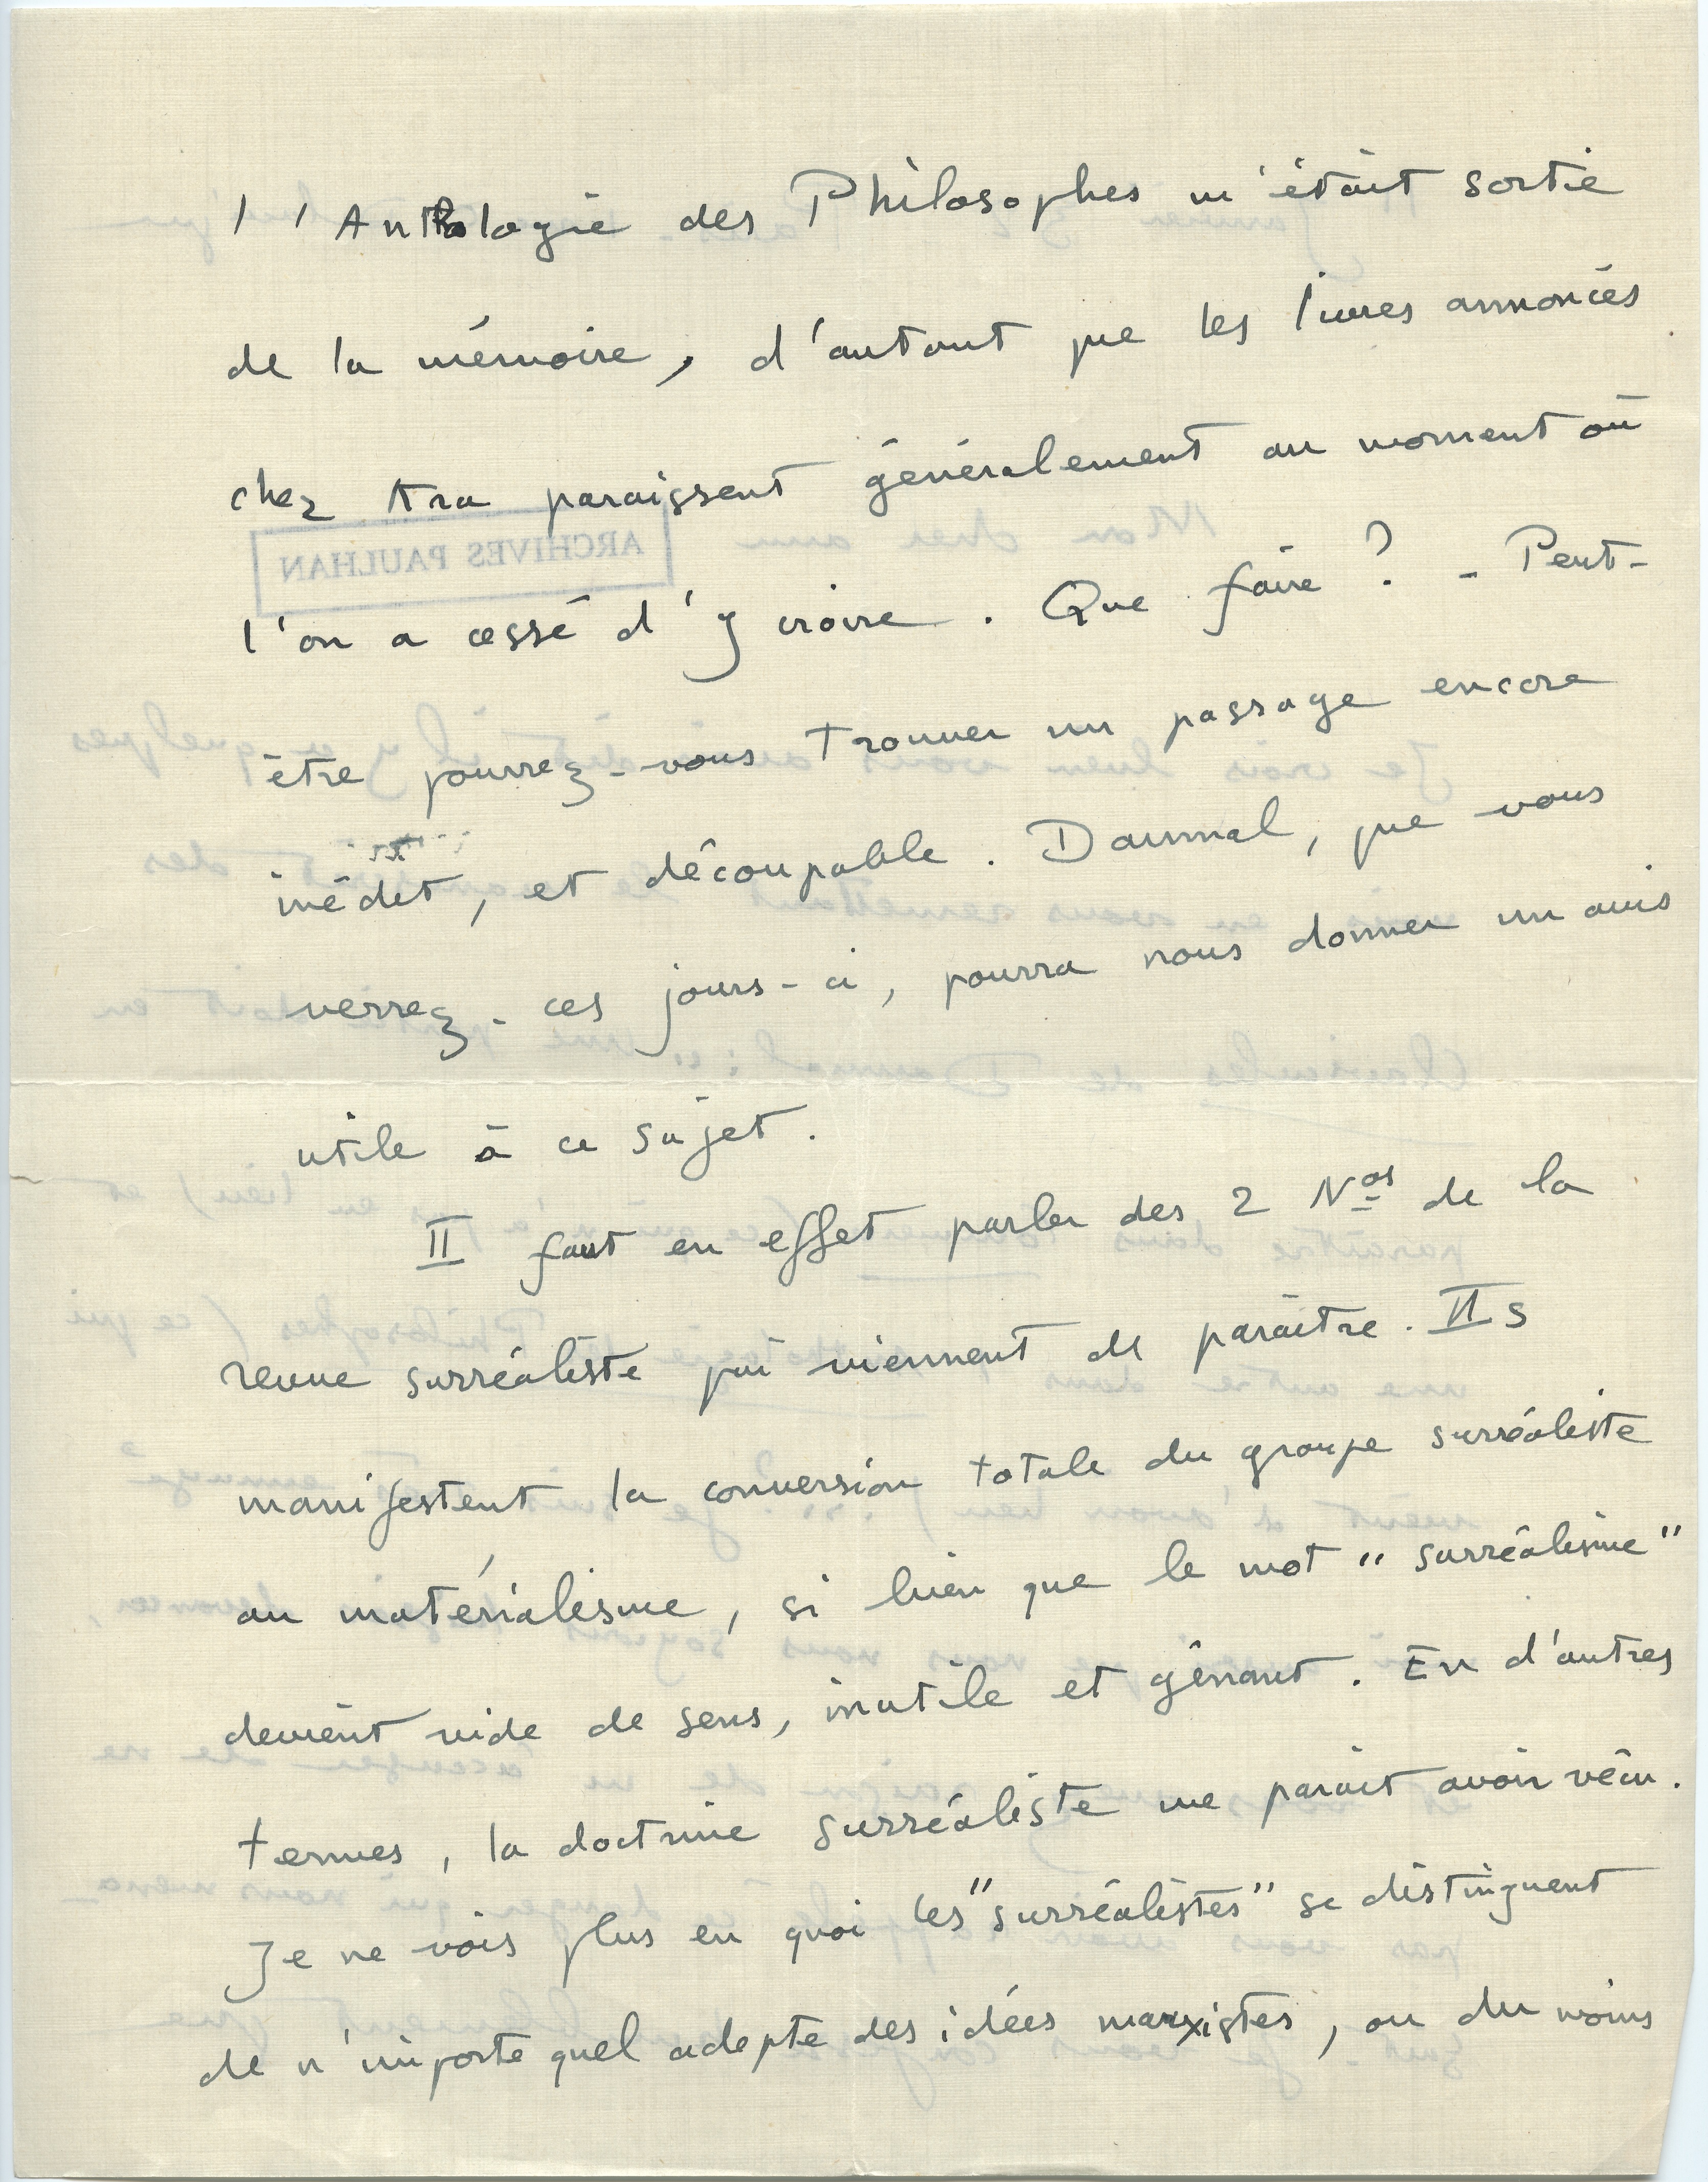 l'Anthologie des Philosophes m'était sortie
de la mémoire, d'autant que les livres annoncés
chez Kra paraissent généralement au moment où
ARCHIVES PAULHAN
l'on a cessé d'y croire. Que faire ? - Peut-
être pourrez-vous trouver un passage encore
inédit, et découpable. Daumal, que vous
verrez - ces jours-ci, pourra nous donner un avis
utile à ce sujet.
Il faut en effet parler des 2 Nos de la
revue surréaliste qui viennent de paraître. Ils
manifestent la conversion totale du groupe surréaliste
au matérialisme, si bien que le mot "surréalisme"
devient vide de sens, inutile et gênant. En d'autres
termes, la doctrine surréaliste me paraît avoir vécu.
Je ne vois plus en quoi les "surréalistes" se distinguent
de n'importe quel adepte des idées marxistes, ou du moins